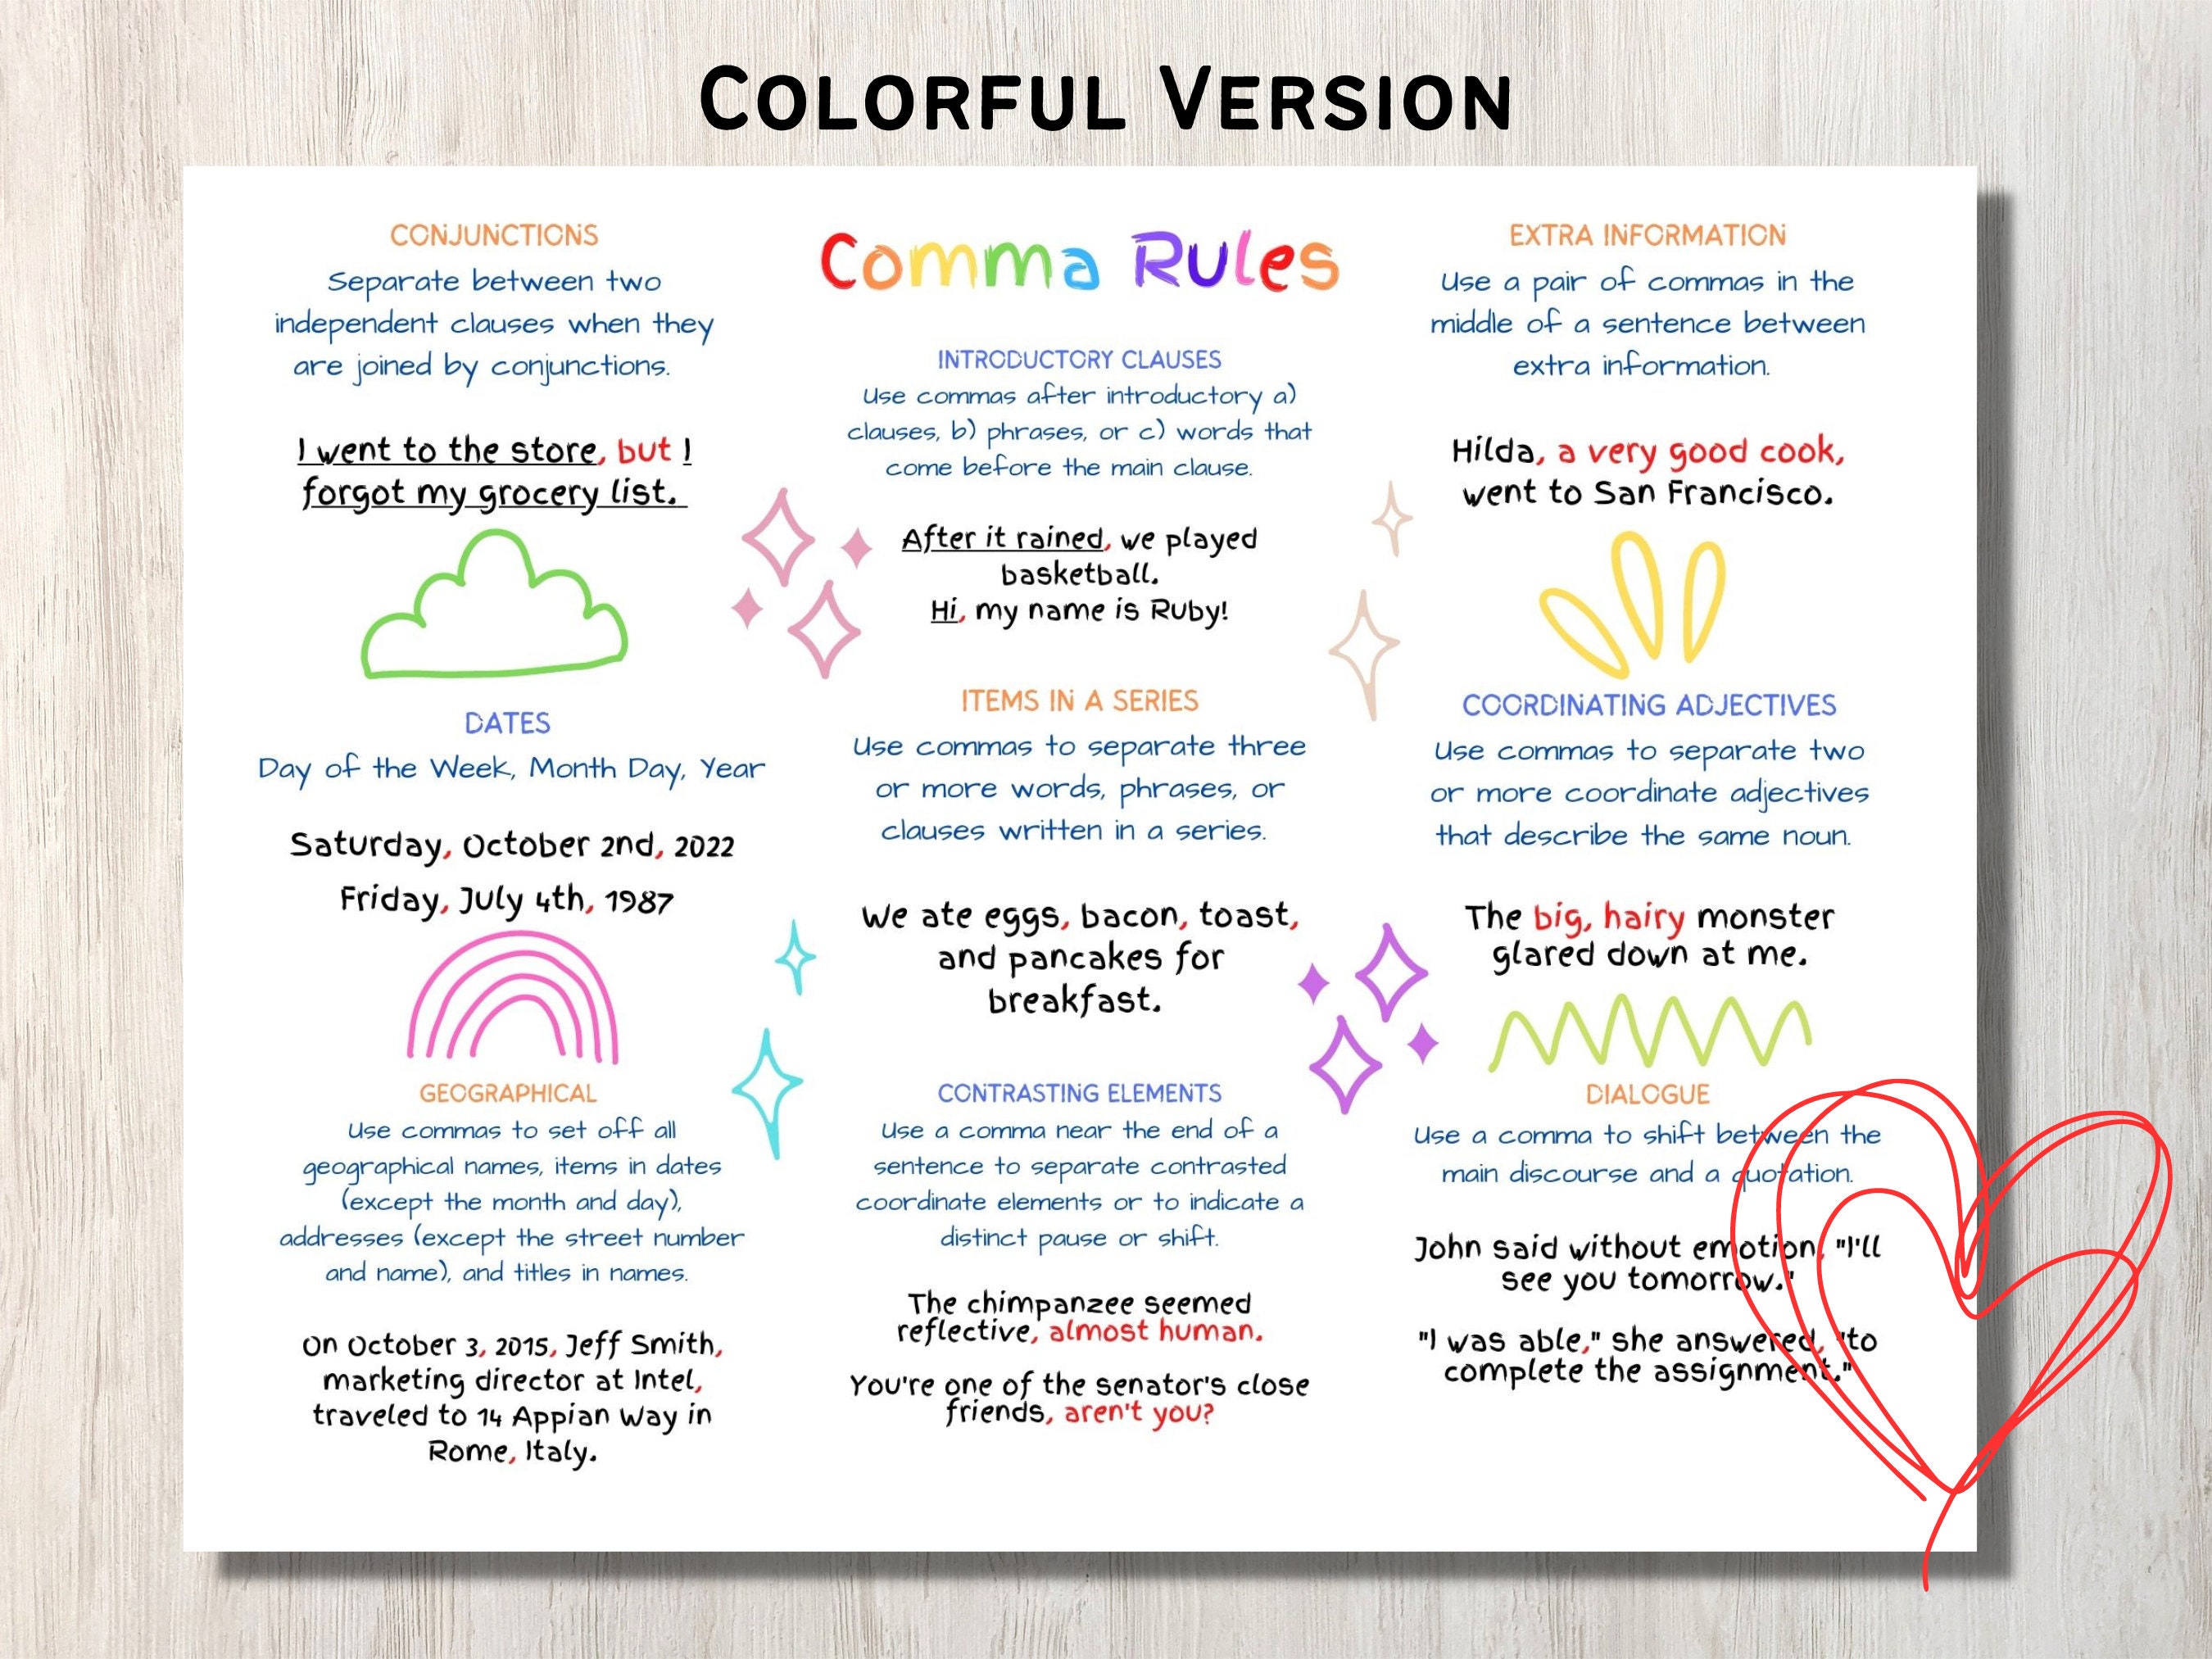 COLORFUL VERSION
CONJUNCTIONS
Separate between two
independent clauses when they
are joined by conjunctions.
I went to the store, but I
forgot my grocery list.
DATES
Day of the Week, Month Day, Year
Saturday, October 2nd, 2022
Friday, July 4th, 1987
GEOGRAPHICAL
Use commas to set off all
geographical names, items in dates
(except the month and day),
addresses (except the street number
and name), and titles in names.
On October 3, 2015, Jeff Smith,
marketing director at Intel,
traveled to 14 Appian Way in
Rome, Italy.
Comma Rules
INTRODUCTORY CLAUSES
Use commas after introductory a)
clauses, b) phrases, or c) words that
come before the main clause.
After it rained, we played
basketball.
Hi, my name is Ruby!
ITEMS IN A SERIES
Use commas to separate three
or more words, phrases, or
clauses written in a series.
We ate eggs, bacon, toast,
and pancakes for
breakfast.
CONTRASTING ELEMENTS
Use a comma near the end of a
sentence to separate contrasted
coordinate elements or to indicate a
distinct pause or shift.
The chimpanzee seemed
reflective, almost human.
You're one of the senator's close
friends, aren't you?
EXTRA INFORMATION
Use a pair of commas in the
middle of a sentence between
extra information.
Hilda, a very good cook,
went to San Francisco.
COORDINATING ADJECTIVES
Use commas to separate two
or more coordinate adjectives
that describe the same noun.
The big, hairy monster
glared down at me.
DIALOGUE
Use a comma to shift between the
main discourse and a quotation.
John said without emotion, "I'll
see you tomorrow."
"I was able," she answered, "to
complete the assignment."